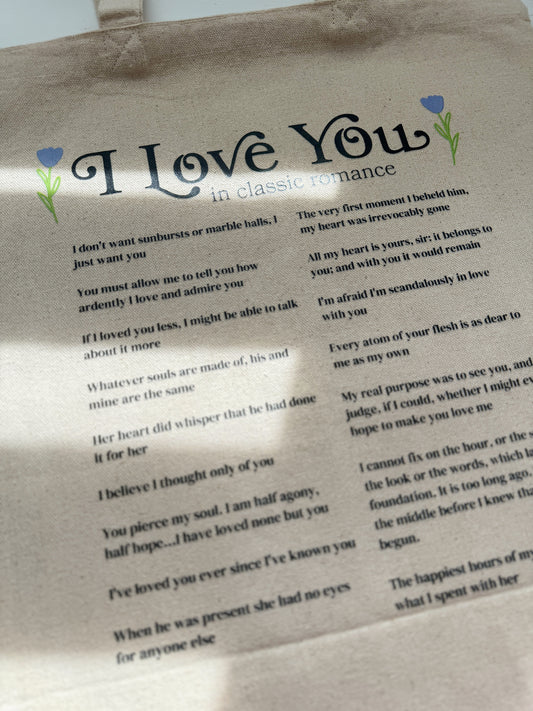 I Love You
in classic romance
I don't want sunbursts or marble halls, I
just want you
You must allow me to tell you how
ardently I love and admire you
If I loved you less, I might be able to talk
about it more
Whatever souls are made of, his and
mine are the same
Her heart did whisper that he had done
it for her
I believe I thought only of you
You pierce my soul. I am half agony,
half hope...I have loved none but you
I've loved you ever since I've known you
When he was present she had no eyes
for anyone else
The very first moment I beheld him,
my heart was irrevocably gone
All my heart is yours, sir: it belongs to
you; and with you it would remain
I'm afraid I'm scandalously in love
with you
Every atom of your flesh is as dear to
me as my own
My real purpose was to see you, and
judge, if I could, whether I might ev
hope to make you love me
I cannot fix on the hour, or the s
the look or the words, which la
foundation. It is too long ago.
the middle before I knew tha
begun.
The happiest hours of my
what I spent with her